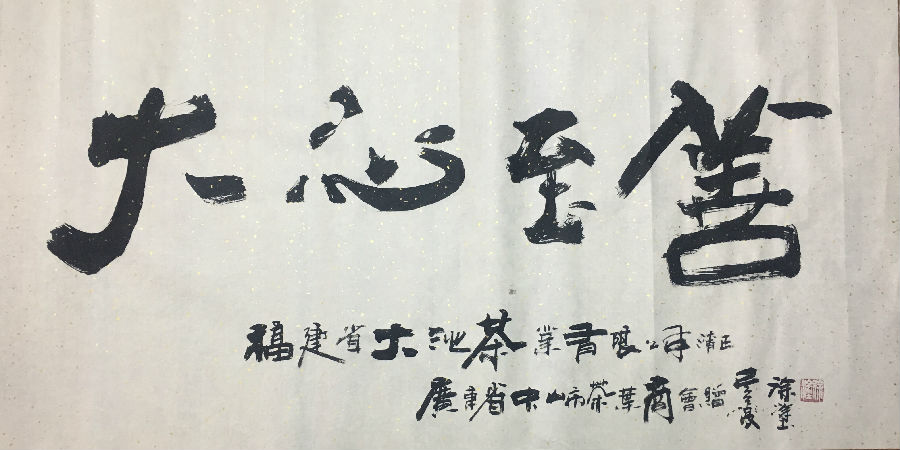 大沁至善
福建省大沁茶業有限公司請正
廣東省中山市茶葉商會贈